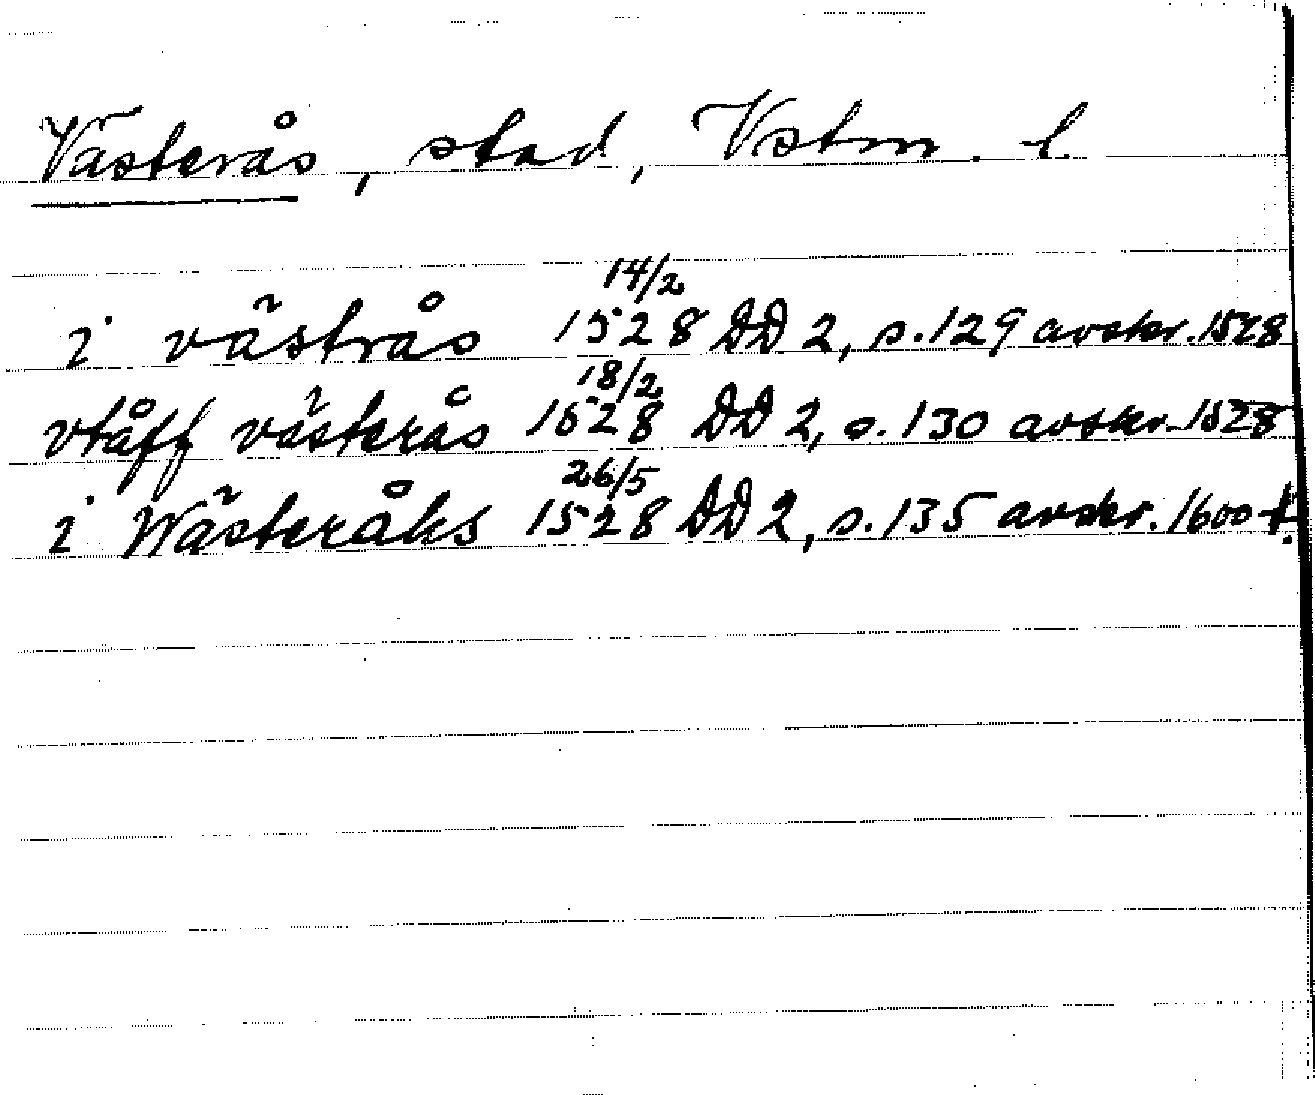 Västerås, stad, Vstm. l
i västrås 14/2 1528 DD 2, s. 129 avskr. 1528
vtåff västerås 18/2 1528 DD 2, s. 130 avskr. 1528
i Wästeråks 26/5 1528 DD 2, s. 135 avskr. 1600-t.